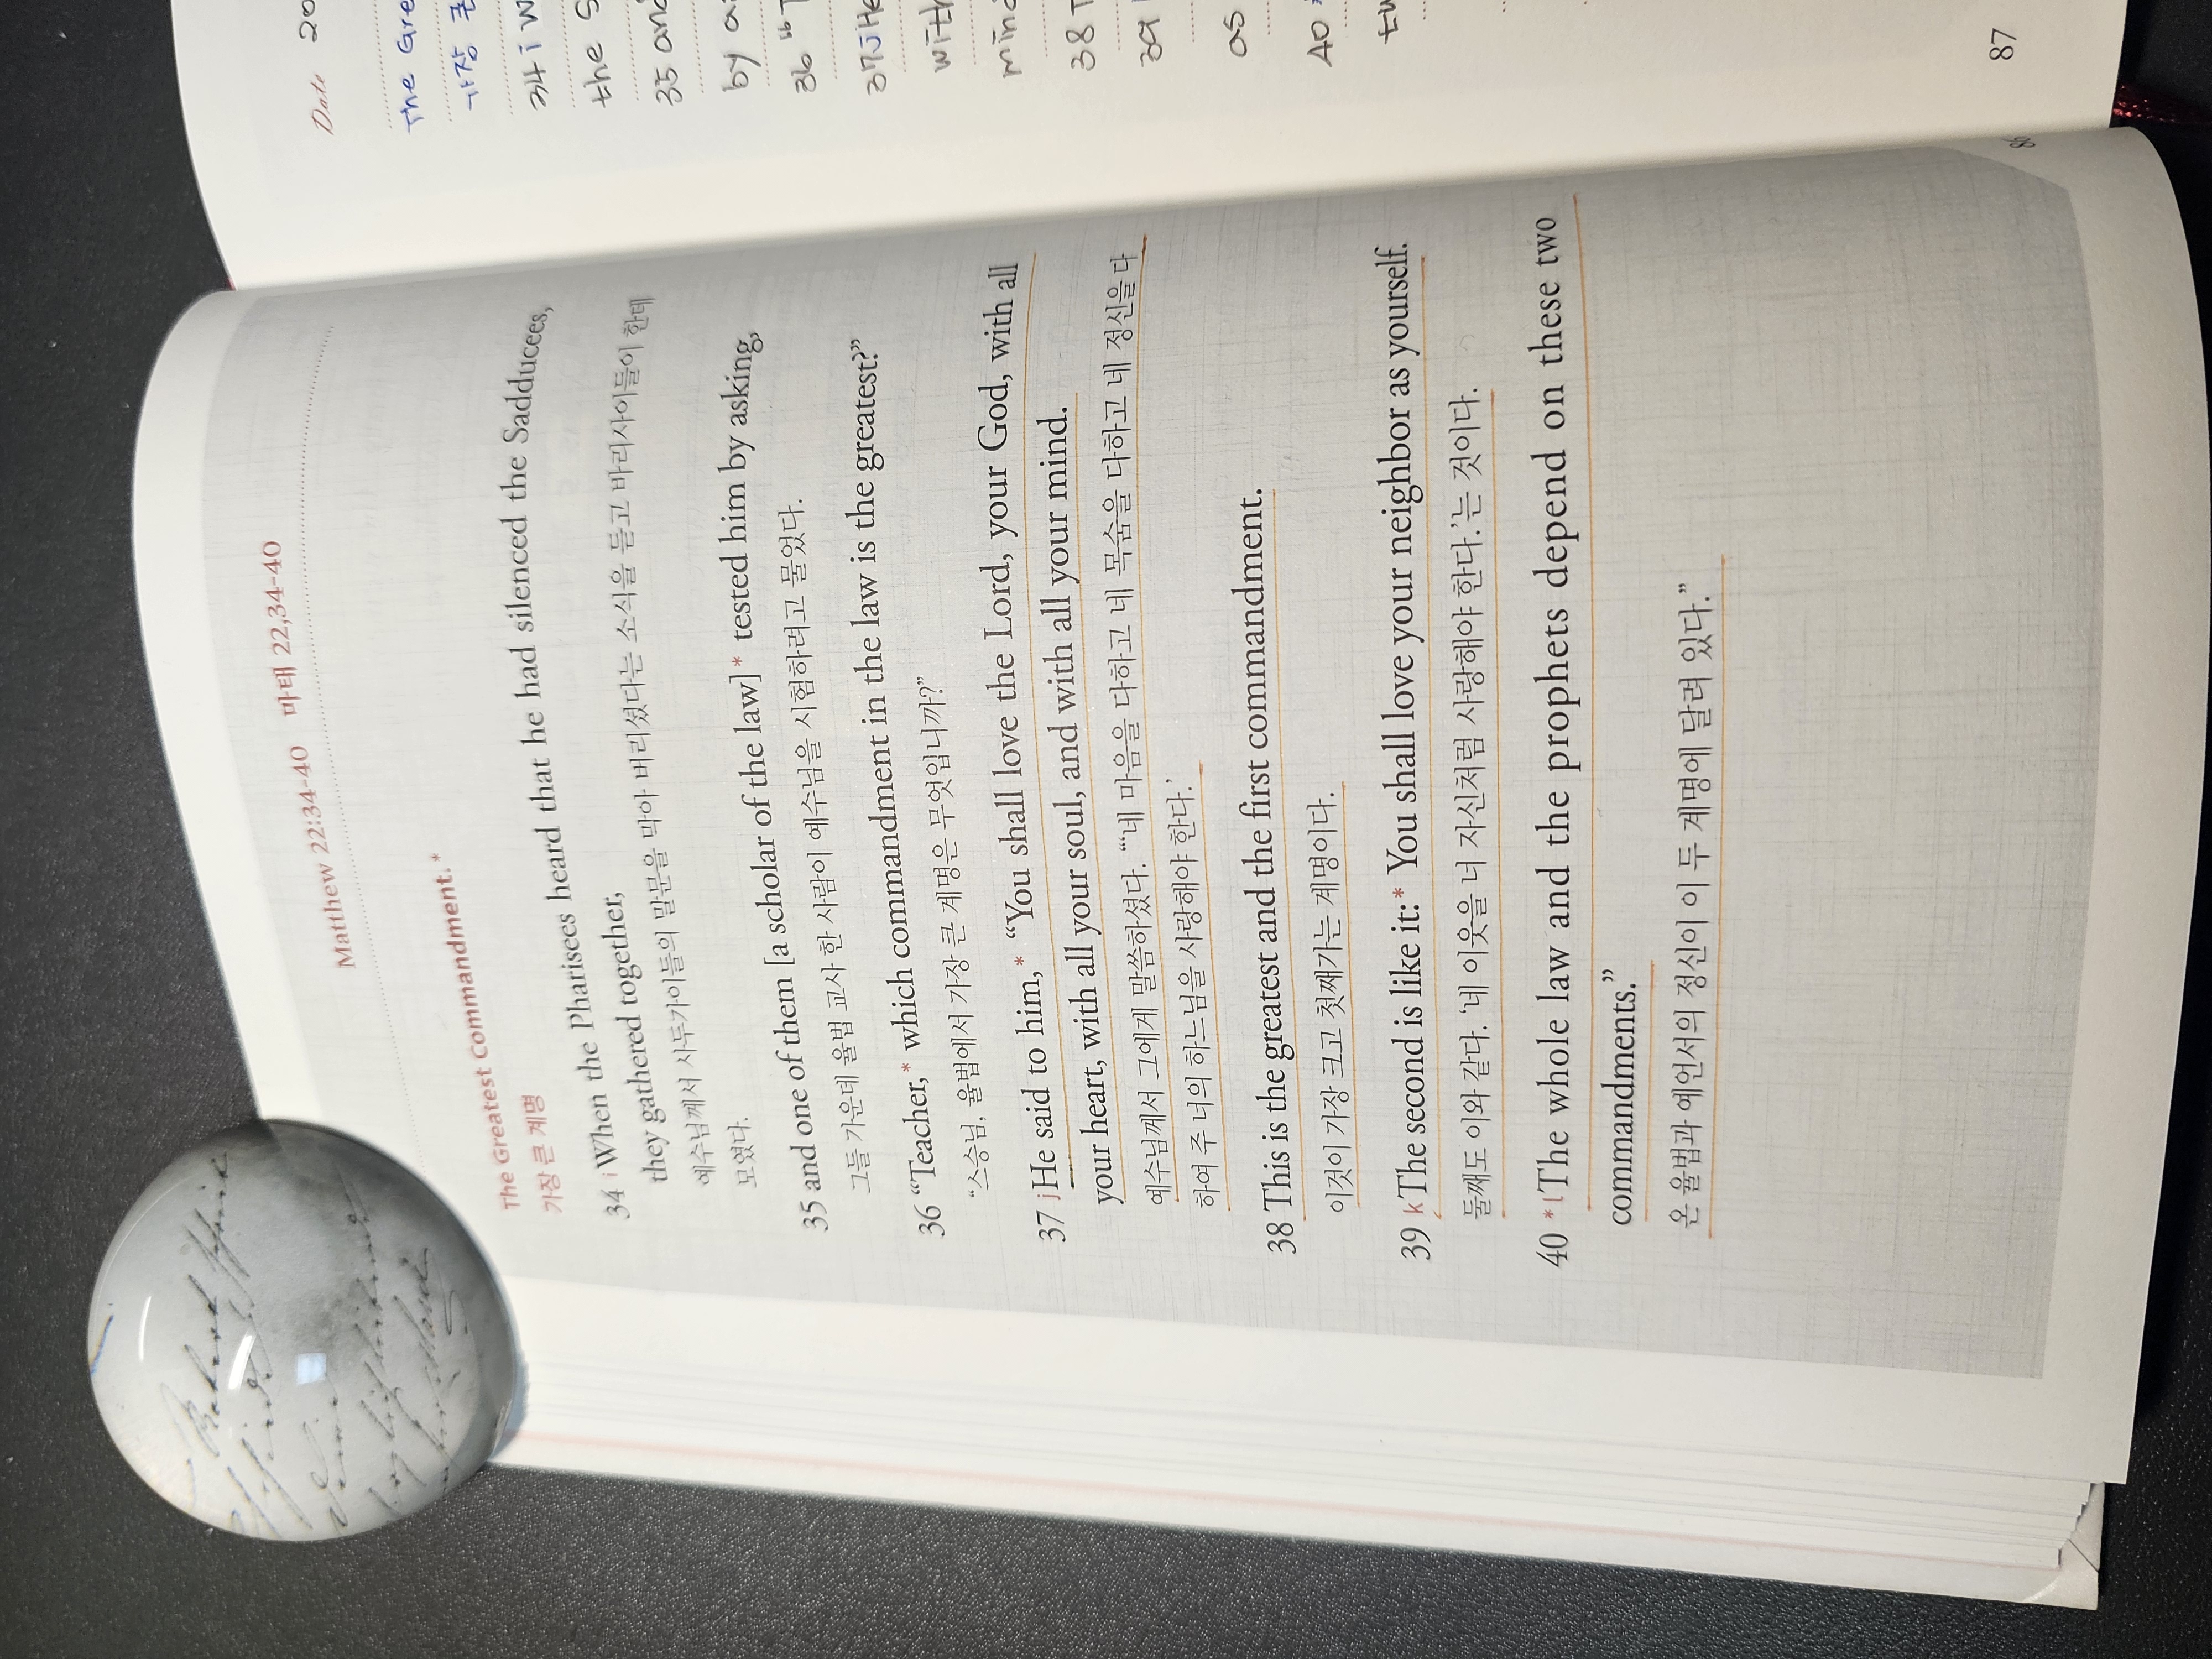 Matthew 22:34-40 마태 22,34-40
The Greatest Commandment.*
가장 큰 계명
34 i When the Pharisees heard that he had silenced the Sadducees,
they gathered together,
예수님께서 사두가이들의 말문을 막아 버리셨다는 소식을 듣고 바리사이들이 한데
모였다.
35 and one of them [a scholar of the law]* tested him by asking,
그들 가운데 율법 교사 한 사람이 예수님을 시험하려고 물었다.
36 “Teacher,* which commandment in the law is the greatest?”
“스승님, 율법에서 가장 큰 계명은 무엇입니까?”
37 j He said to him,* “You shall love the Lord, your God, with all
your heart, with all your soul, and with all your mind.
예수님께서 그에게 말씀하셨다. “‘네 마음을 다하고 네 목숨을 다하고 네 정신을 다
하여 주 너의 하느님을 사랑해야 한다.’
38 This is the greatest and the first commandment.
이것이 가장 크고 첫째가는 계명이다.
39 k The second is like it:* You shall love your neighbor as yourself.
둘째도 이와 같다. ‘네 이웃을 너 자신처럼 사랑해야 한다.’는 것이다.
40 * l The whole law and the prophets depend on these two
commandments.”
온 율법과 예언서의 정신이 이 두 계명에 달려 있다.”
86
Date 20
The Gre
가장 큰
34 i W
the S
35 and
by a
36 “T
37 j He
with
mind
38 T
39
as
40 *
tw
87